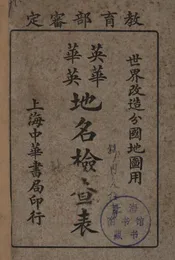 定審部育教
世界改造分國地圖用
英華
華英
地名檢查表
上海中華書局印行